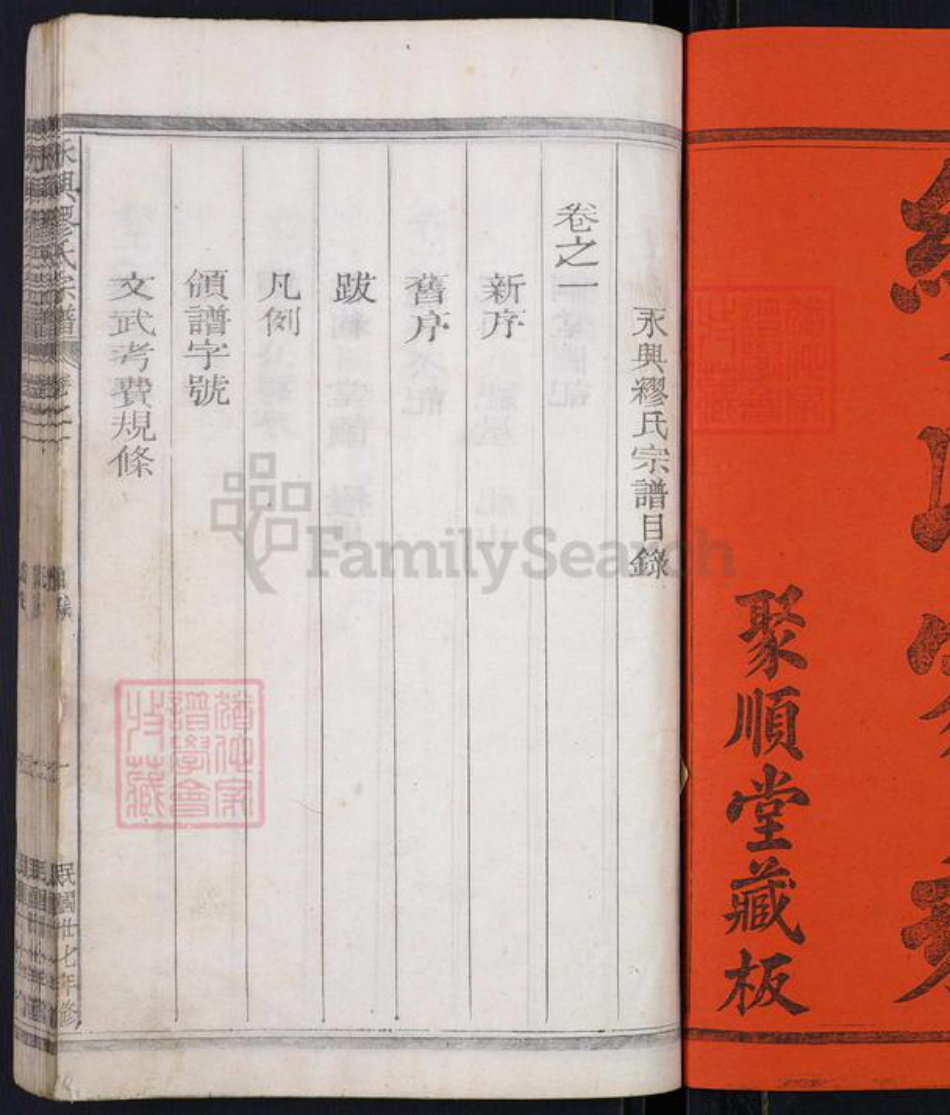 聚順堂藏板
永興繆氏宗譜目錄
卷之一
新序
舊序
跋
凡例
領譜字號
文武考費規條
永興繆氏宗譜
民國卅七年修
FamilySearch